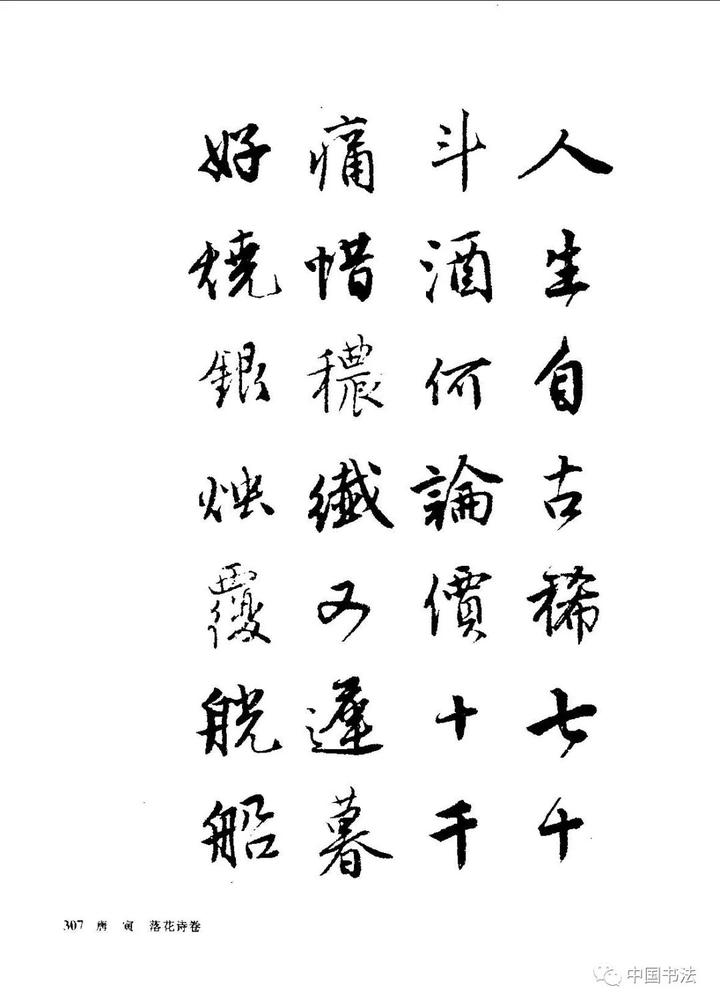 人生自古稀七十
斗酒何論價十千
痛惜穠纖又遲暮
好燒銀燭覆觥船
307 唐 寅 落花诗卷
中国书法